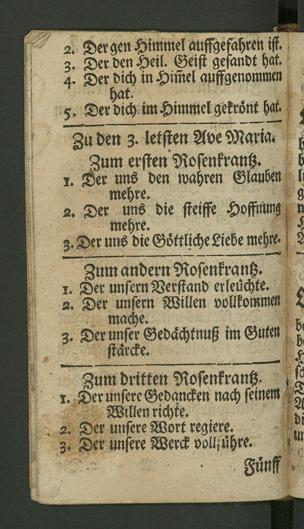 2. Der gen Himmel auffgefahren ist.
3. Der den Heil. Geist gesandt hat.
4. Der dich in Him̄el auffgenommen
hat.
5. Der dich im Himmel gekrönt hat.
Zu den 3. letsten Ave Maria.
Zum ersten Rosenkrantz.
1. Der uns den wahren Glauben
mehre.
2. Der uns die steiffe Hoffnung
mehre.
3. Der uns die Göttliche Liebe mehre.
Zum andern Rosenkrantz.
1. Der unsern Verstand erleüchte.
2. Der unsern Willen vollkommen
mache.
3. Der unser Gedächtnuß im Guten
stärcke.
Zum dritten Rosenkrantz.
1. Der unsere Gedancken nach seinem
Willen richte.
2. Der unsere Wort regiere.
3. Der unsere Werck vollführe.
Fünff